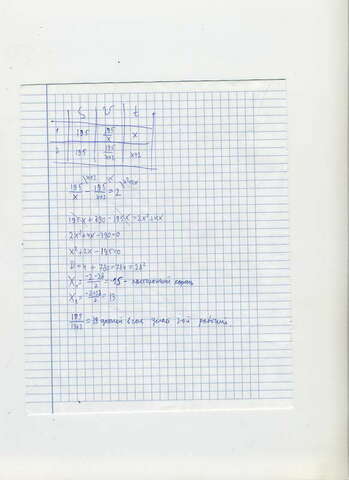 S V t
1 195 195/x x
2 195 195/(x+2) x+2
195/x - 195/(x+2) = 2
195x + 390 - 195x = 2x² + 4x
2x² + 4x - 390 = 0
x² + 2x - 195 = 0
D = 4 + 780 = 784 = 28²
X₁ = (-2-28)/2 = -15 - посторонний корень
X₂ = (-2+28)/2 = 13
в час делал 2-ой рабочий